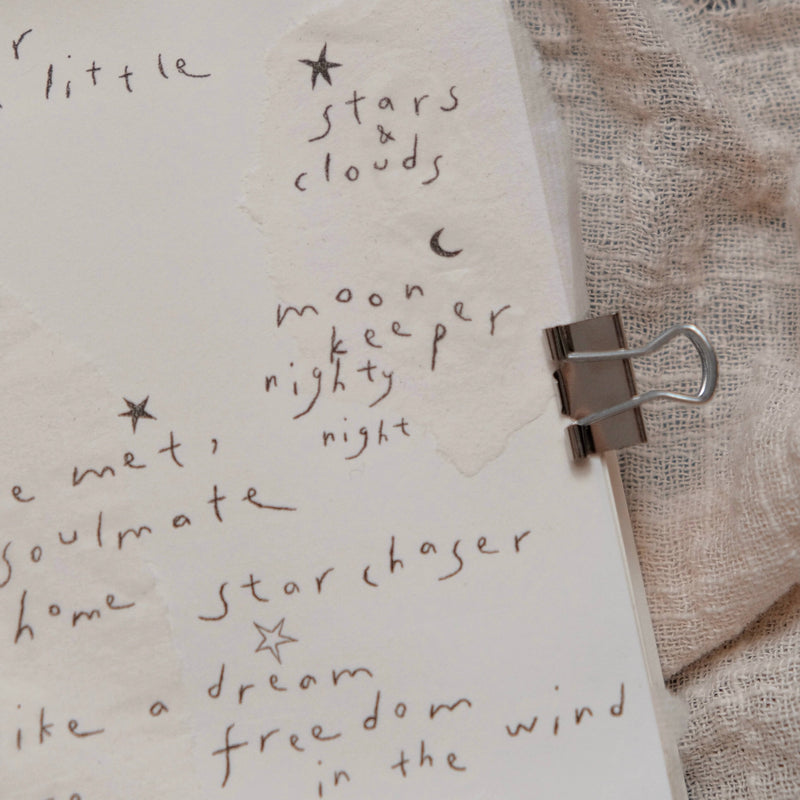 r
little
stars
&
clouds
moon
keeper
nighty
night
e met,
soulmate
home
star chaser
ike a dream
freedom
in the wind